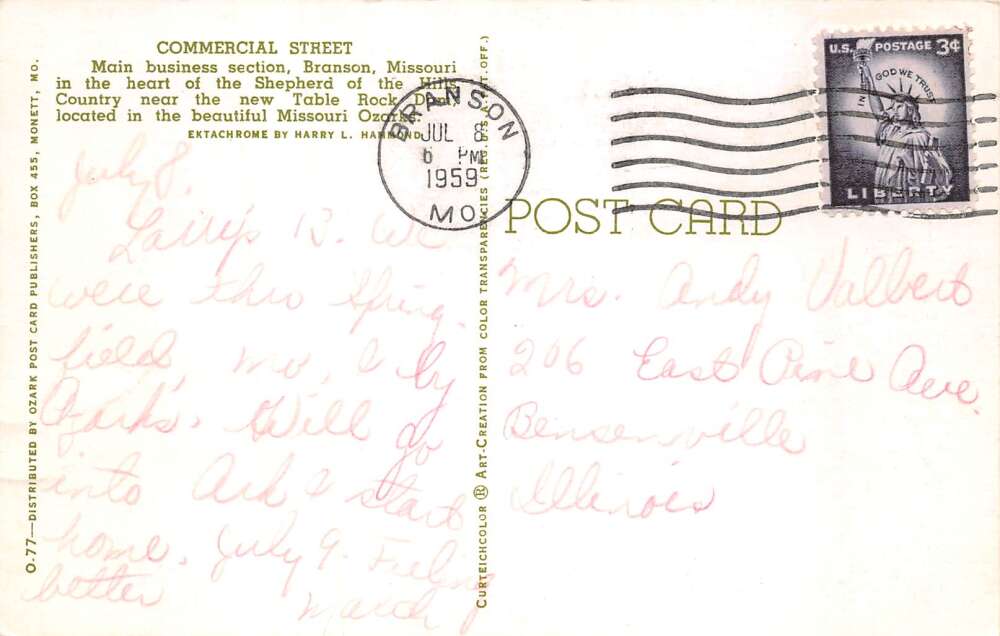 COMMERCIAL STREET
Main business section, Branson, Missouri
in the heart of the Shepherd of the Hills
Country near the new Table Rock Dam,
located in the beautiful Missouri Ozarks.
EKTACHROME BY HARRY L. HAMMOND
O-77—DISTRIBUTED BY OZARK POST CARD PUBLISHERS, BOX 455, MONETT, MO.
July 8.
B. We
were thru Spring-
field, Mo, & by
Ozarks. Will go
into Ark & start
home. July 9. Feeling
better
CURTEICHCOLOR ® ART-CREATION FROM COLOR TRANSPARENCIES (REG. U.S.A. PAT. OFF.)
BRANSON
JUL 8
6 PM
1959
MO.
POST CARD
U.S. POSTAGE 3¢
IN GOD WE TRUST
LIBERTY
Mrs. Andy Valbert
206 East Pine Ave.
Bensenville
Illinois